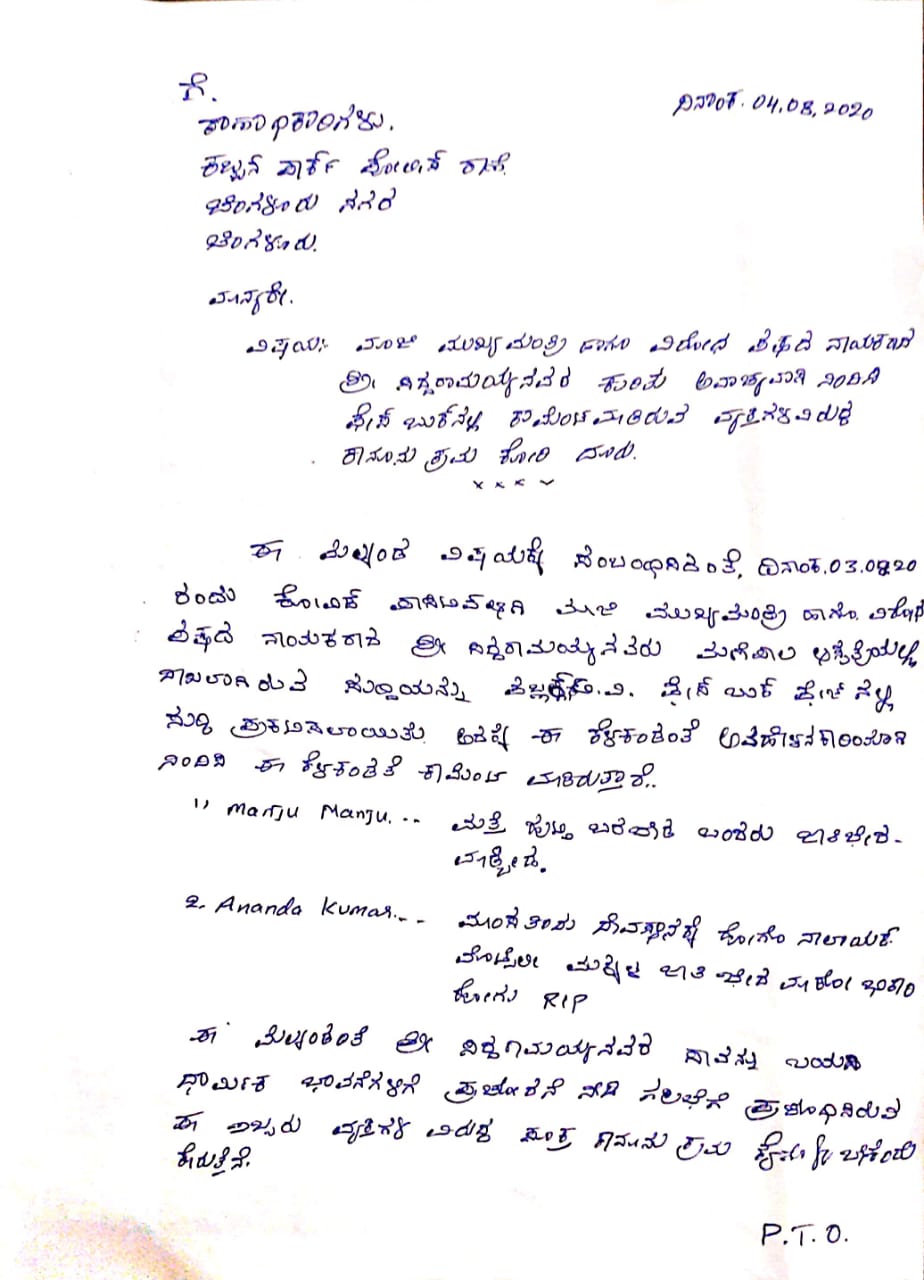 ಗೆ.
ದಿನಾಂಕ. 04.08.2020
ಠಾಣಾಧಿಕಾರಿಗಳು.
ಕಬ್ಬನ್ ಪಾರ್ಕ್ ಪೋಲೀಸ್ ಠಾಣೆ.
ಬೆಂಗಳೂರು ನಗರ
ಬೆಂಗಳೂರು.
ಮಾನ್ಯರೇ.
ವಿಷಯ: ಮಾಜಿ ಮುಖ್ಯಮಂತ್ರಿ ಹಾಗೂ ವಿರೋಧ ಪಕ್ಷದ ನಾಯಕರಾದ
ಶ್ರೀ ಸಿದ್ದರಾಮಯ್ಯನವರ ಕುರಿತು ಅವಾಚ್ಯವಾಗಿ ನಿಂದಿಸಿ
ಫೇಸ್ ಬುಕ್‌ನಲ್ಲಿ ಕಾಮೆಂಟ್ ಮಾಡಿರುವ ವ್ಯಕ್ತಿಗಳ ವಿರುದ್ಧ
ಕಾನೂನು ಕ್ರಮ ಕೋರಿ ದೂರು.
x x x
ಈ ಮೇಲ್ಕಂಡ ವಿಷಯಕ್ಕೆ ಸಂಬಂಧಿಸಿದಂತೆ, ದಿನಾಂಕ.03.08.20
ರಂದು ಕೋವಿಡ್ ಪಾಸಿಟಿವ್ ಆಗಿ ಮಾಜಿ ಮುಖ್ಯಮಂತ್ರಿ ಹಾಗೂ ವಿರೋಧ
ಪಕ್ಷದ ನಾಯಕರಾದ ಶ್ರೀ ಸಿದ್ದರಾಮಯ್ಯನವರು ಮಣಿಪಾಲ ಆಸ್ಪತ್ರೆಯಲ್ಲಿ
ದಾಖಲಾಗಿರುವ ಸುದ್ದಿಯನ್ನು ಪಬ್ಲಿಕ್ ಟಿ.ವಿ. ಫೇಸ್ ಬುಕ್ ಪೇಜ್ ನಲ್ಲಿ
ಸುದ್ದಿ ಪ್ರಕಟಿಸಲಾಯಿತು. ಅದಕ್ಕೆ ಈ ಕೆಳಕಂಡಂತೆ ಅವಹೇಳನಕಾರಿಯಾಗಿ
ನಿಂದಿಸಿ ಈ ಕೆಳಕಂಡಂತೆ ಕಾಮೆಂಟ್ ಮಾಡಿರುತ್ತಾರೆ..
1) Manju Manju. .. ಮತ್ತೆ ಹುಟ್ಟಿ ಬರಬೇಡ ಬಂದರು ಜಾತಿ ಬೇಧ-
ಮಾಡ್ಬೇಡ.
2. Ananda Kumar. - - ಮಾಂಸ ತಿಂದು ದೇವಸ್ಥಾನಕ್ಕೆ ಹೋಗೊ ನಾಲಾಯಕ್
ಮಕ್ಕಳ ಜಾತಿ ಬೇಧ ಮಾಡೋ
ಹೋಗು RIP
ಈ ಮೇಲ್ಕಂಡಂತೆ ಶ್ರೀ ಸಿದ್ದರಾಮಯ್ಯನವರ ಸಾವನ್ನು ಬಯಸಿ
ಧಾರ್ಮಿಕ ಭಾವನೆಗಳಿಗೆ ಪ್ರಚೋದನೆ ನೀಡಿ ಗಲಭೆಗೆ ಪ್ರಚೋಧಿಸಿರುವ
ಈ ಇಬ್ಬರು ವ್ಯಕ್ತಿಗಳ ವಿರುದ್ಧ ಸೂಕ್ತ ಕಾನೂನು ಕ್ರಮ
ಕೋರುತ್ತೇನೆ.
P.T.O.